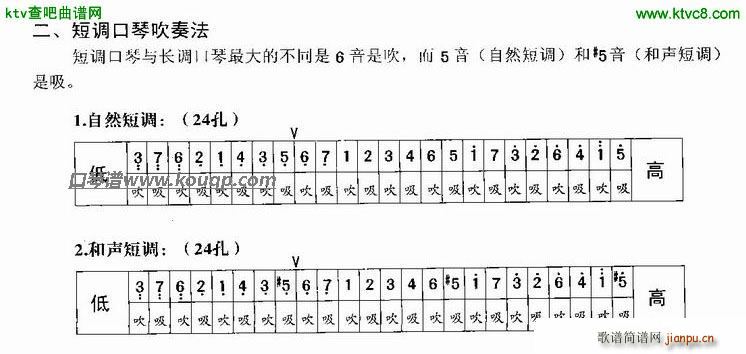 ktv查吧曲谱网
www.ktvc8.com
二、短调口琴吹奏法
短调口琴与长调口琴最大的不同是 6 音是吹，而 5 音（自然短调）和#5音（和声短调）
是吸。
1.自然短调：（24孔）
V
低 3 7 6 2 1 4 3 5 6 7 1 2 3 4 6 5 1 7 3 2 6 4 1 5 高
吹 吸 吹 吸 吹 吸 吹 吸 吹 吸 吹 吸 吹 吸 吹 吸 吹 吸 吹 吸 吹 吸 吹 吸
口琴谱www.kouqp.com
2.和声短调：（24孔）
V
低 3 7 6 2 1 4 3 #5 6 7 1 2 3 4 6 #5 1 7 3 2 6 4 1 #5 高
吹 吸 吹 吸 吹 吸 吹 吸 吹 吸 吹 吸 吹 吸 吹 吸 吹 吸 吹 吸 吹 吸 吹 吸
歌谱简谱网
jianpu.cn